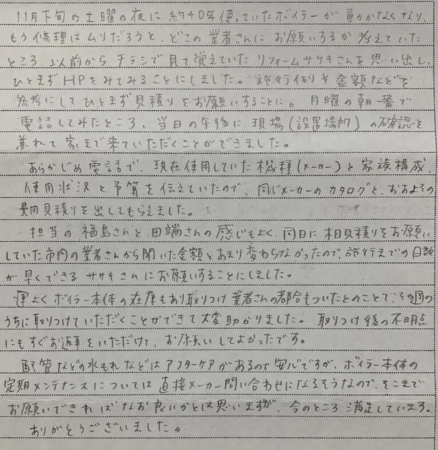 11月下旬の土曜の夜に約40年使っていたボイラーが動かなくなり、
もう修理はムリだろうと、どこの業者さんにお願いするか考えていた
ところ、以前からチラシで見て覚えていたリフォームササキさんを思い出し、
ひとまずHPをみてみることにしました。施行例や金額などを
参考にしてひとまず見積りをお願いすることに。月曜の朝一番で
電話してみたところ、当日の午後に現場(設置場所)の確認を
兼ねて家まで来ていただくことができました。
あらかじめ電話で、現在使用していた機種(メーカー)と家族構成、
使用状況と予算を伝えていたので、同じメーカーのカタログと、おおよその
費用見積りを出してもらえました。
担当の福島さんと田端さんの感じもよく、同日に相見積りをお願い
していた市内の業者さんから聞いた金額とあまり変わらなかったので、施行までの日数
が早くできるササキさんにお願いすることにしました。
運よくボイラー本体の在庫もあり取りつけ業者さんの都合もついたとのことでその週の
うちに取りつけていただくことができて大変助かりました。取りつけ後の不明点
にもすぐお返事をいただけて、お願いしてよかったです。
配管などの水もれなどはアフターケアがあるので安心ですが、ボイラー本体の
定期メンテナンスについては直接メーカー問い合わせになるそうなので、そこまで
お願いできればなお良いかとは思いますが、今のところ満足しています。
ありがとうございました。